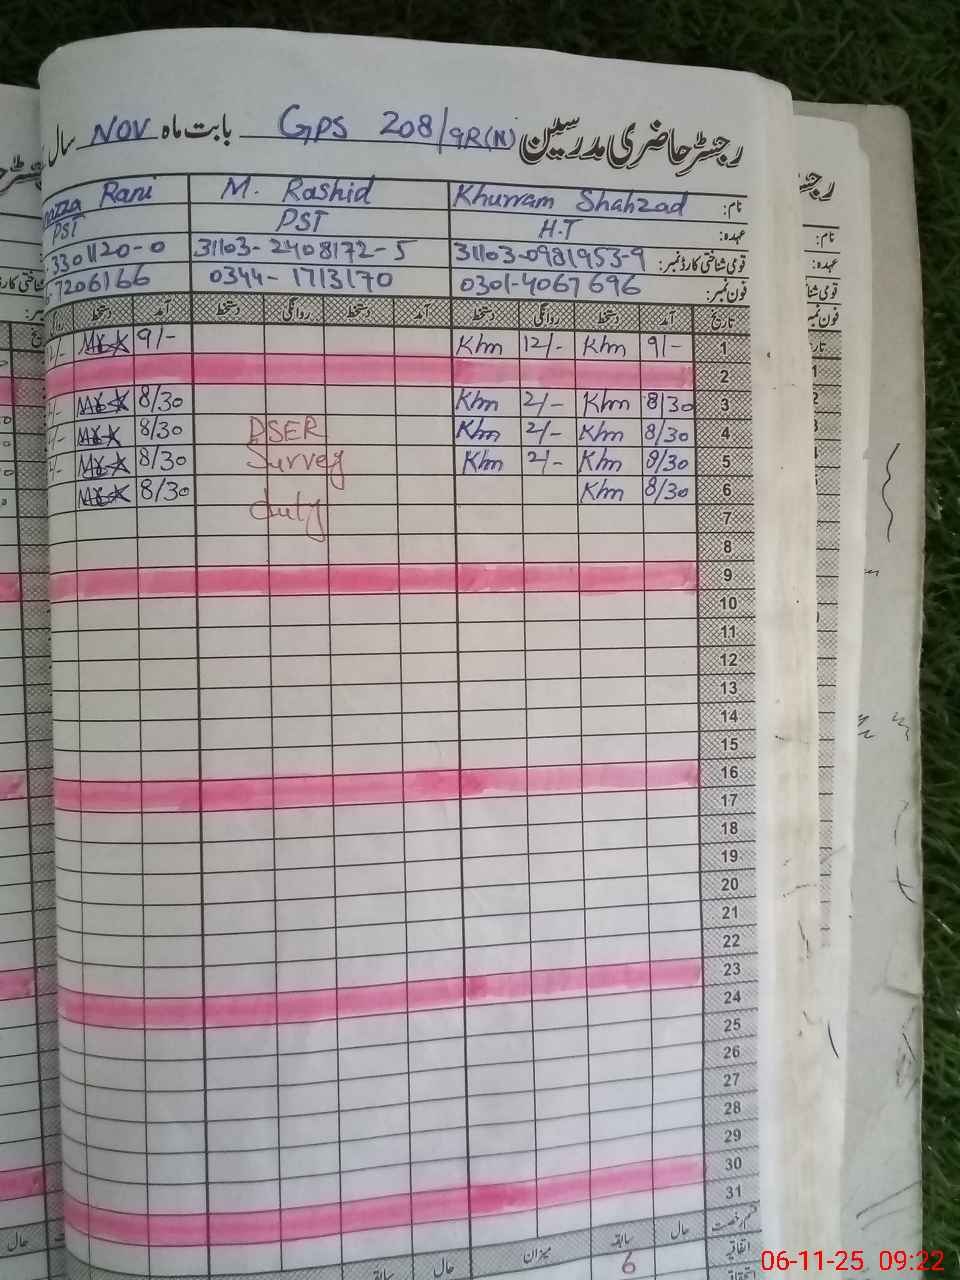 رجسٹر حاضری مدرسین GPS 208/9R(N) بابت ماہ NOV سال
نام: Khurram Shahzad M. Rashid Rani
عہدہ: H.T PST PST
قومی شناختی کارڈ نمبر: 31103-0981953-9 31103-2408172-5 3301120-0
فون نمبر: 0301-4067696 0344-1713170 7206166
تاریخ آمد دستخط روانگی دستخط آمد دستخط روانگی دستخط آمد دستخط
1 9/- Khm 12/- Khm 9/-
2
3 8/30 Khm 2/- Khm 8/30
4 8/30 Khm 2/- Khm DSER 8/30
5 8/30 Khm 2/- Khm Survey 8/30
6 8/30 Khm duty 8/30
7
8
9
10
11
12
13
14
15
16
17
18
19
20
21
22
23
24
25
26
27
28
29
30
31
حال سابقہ میزان حال سابقہ
اتفاقیہ 6
حال
رجسٹر
نام:
عہدہ:
فون نمبر
06-11-25 09:22